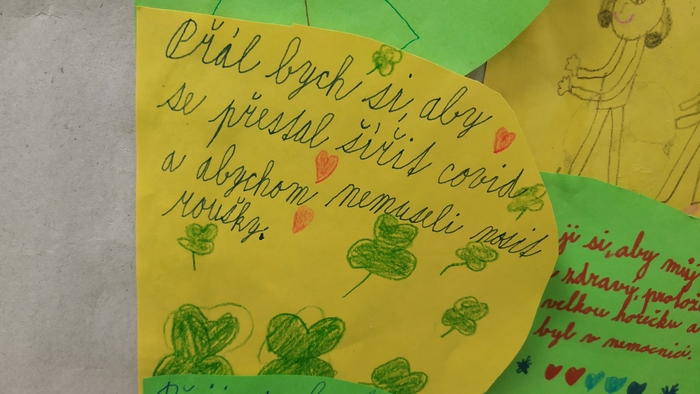 Přál bych si, aby
se přestal šířit covid
a abychom nemuseli nosit
roušky.
ji si, aby můj
zdravý, protože
velkou horečku a
byl v nemocnici.